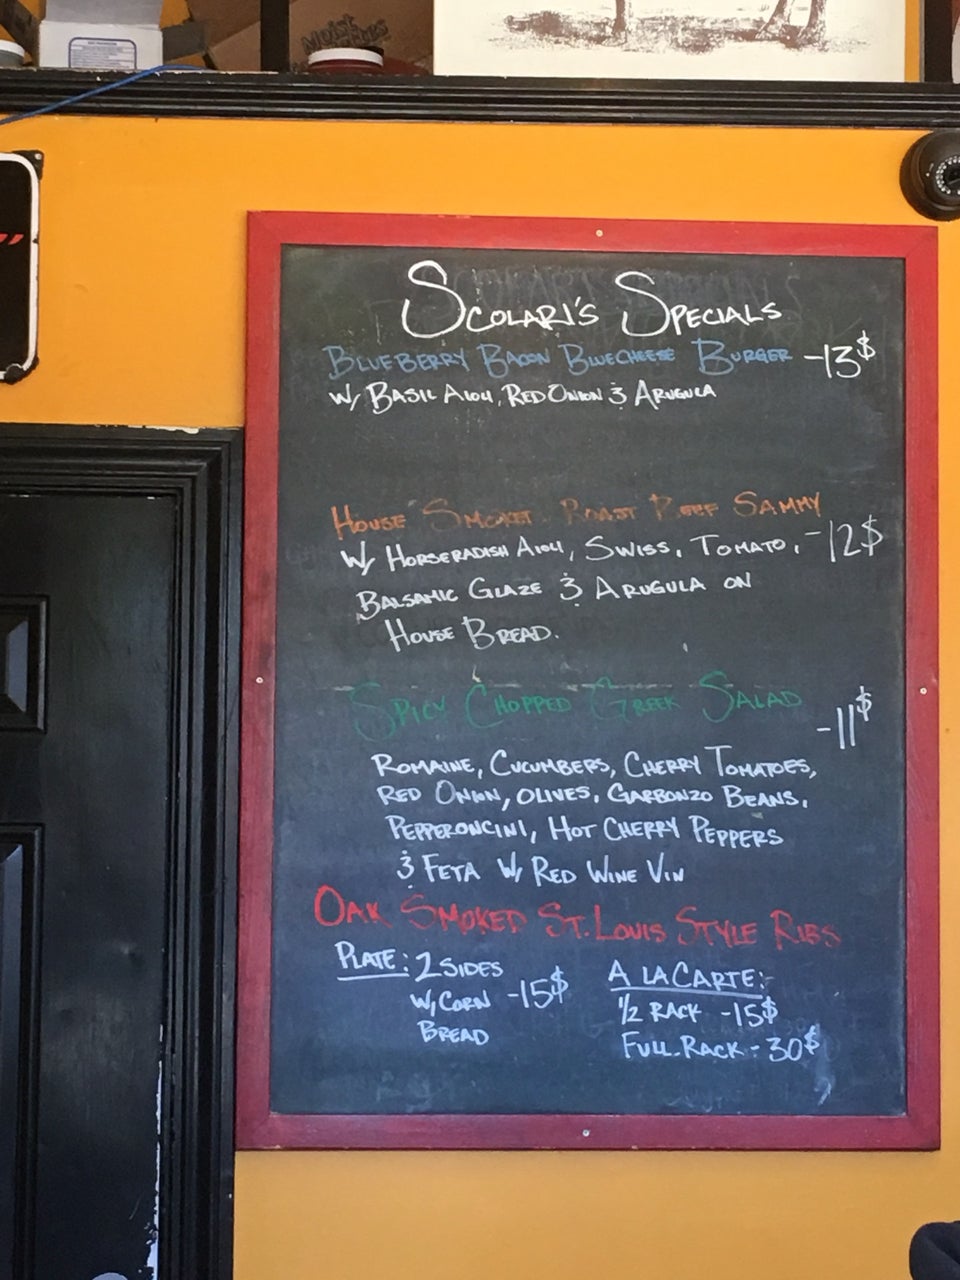 Moist
SCOLARI'S SPECIALS
BLUEBERRY BACON BLUECHEESE BURGER -13$
W/ BASIL AIOLI, RED ONION & ARUGULA
HOUSE SMOKED ROAST BEEF SAMMY
W/ HORSERADISH AIOLI, SWISS, TOMATO, -12$
BALSAMIC GLAZE & ARUGULA ON
HOUSE BREAD.
SPICY CHOPPED GREEK SALAD
-11$
ROMAINE, CUCUMBERS, CHERRY TOMATOES,
RED ONION, OLIVES, GARBONZO BEANS,
PEPPERONCINI, HOT CHERRY PEPPERS
& FETA W/ RED WINE VIN
OAK SMOKED ST. LOUIS STYLE RIBS
PLATE: 2 SIDES
W/ CORN -15$
BREAD
A LA CARTE:
1/2 RACK -15$
FULL RACK - 30$